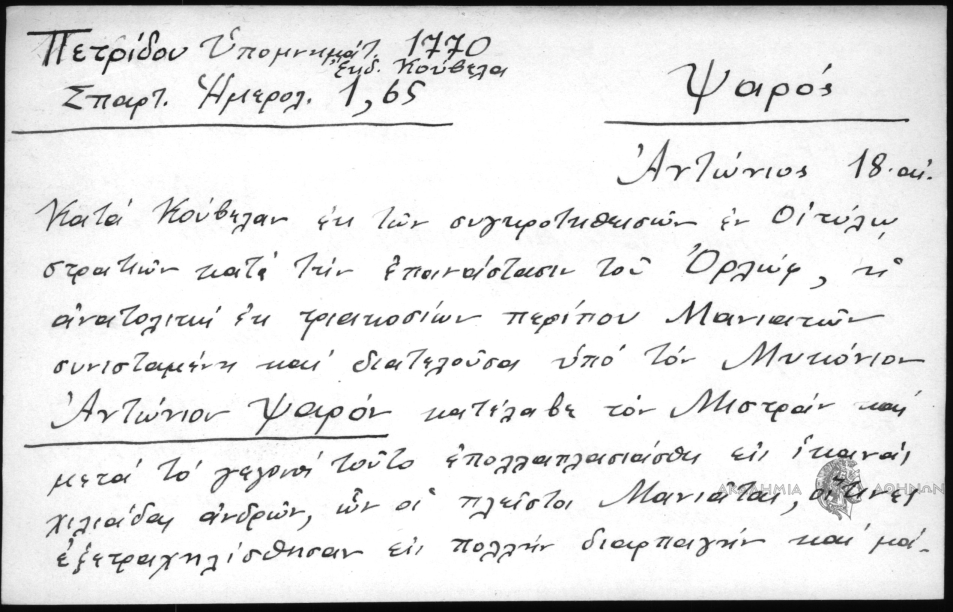 Πετρίδου Ὑπομνημάτ. 1770
ἐκδ. Κούβελα
Σπαρτ. Ἡμερολ. 1,65
Ψαρός
Ἀντώνιος 18. αἰ.
Κατά Κούβελαν ἐκ τῶν συγκροτηθεισῶν ἐν Οἰτύλῳ
στρατιῶν κατά τήν ἐπανάστασιν τοῦ Ὀρλώφ, ἡ
ἀνατολική ἐκ τριακοσίων περίπου Μανιατῶν
συνισταμένη καί διατελοῦσα ὑπό τόν Μυκόνιον
Ἀντώνιον Ψαρόν κατέλαβε τόν Μιστράν καί
μετά τό γεγονός τοῦτο ἐπολλαπλασιάσθη εἰς ἱκανάς
χιλιάδας ἀνδρῶν, ὧν οἱ πλεῖστοι Μανιᾶται, οἵτινες
ἐξετραχηλίσθησαν εἰς πολλήν διαρπαγήν καί μά-
ΑΚΑΔΗΜΙΑ ΑΘΗΝΩΝ